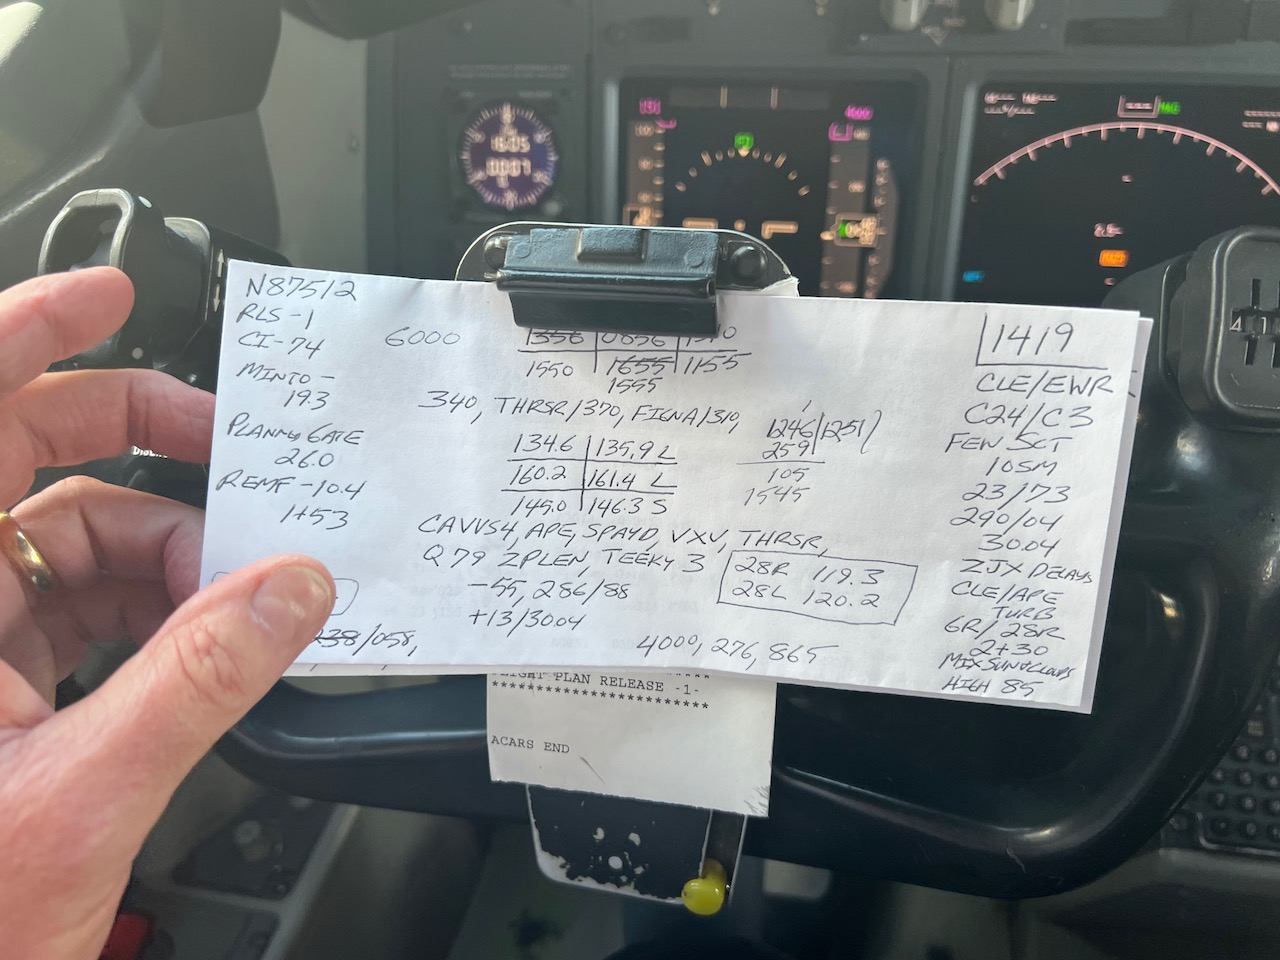 N87512
RLS-1
CI-74
MINTO-
19.3
PLANND GATE
26.0
REMF-10.4
1+53
6000
1356 0856
1550 1655 1155
1555
340, THRSR/370, FIGNA/310,
134.6 135.9 L
160.2 161.4 L
145.0 146.3 S
1246/1251
259
105
1545
CAVVS4, APE, SPAYD, VXV, THRSR,
Q79 ZPLEN, TEEKY 3
-55, 286/88
+13/3004
28R 119.3
28L 120.2
238/058,
4000, 276, 865
1419
CLE/EWR
C24/C3
FEW SCT
10SM
23/73
290/04
30.04
ZJX DELAYS
CLE/APE
TURB
6R/28R
2+30
MIX SUN & CLOUDS
HIGH 85
FLIGHT PLAN RELEASE -1-
**********************
ACARS END
1605
0007
4000